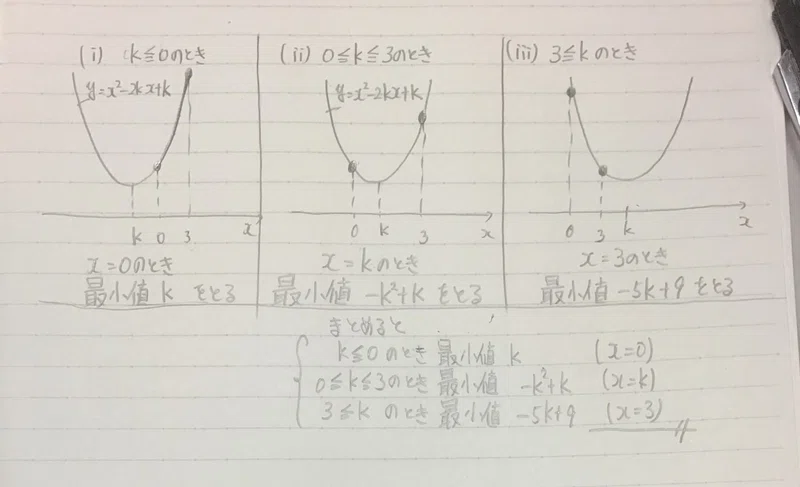 (i) k≦0のとき
y=x²-2kx+k
k 0 3 x
x=0のとき
最小値 k をとる
(ii) 0≦k≦3のとき
y=x²-2kx+k
0 k 3 x
x=kのとき
最小値 -k²+k をとる
(iii) 3≦kのとき
0 3 k x
x=3のとき
最小値 -5k+9 をとる
まとめると
k≦0のとき 最小値 k (x=0)
0≦k≦3のとき 最小値 -k²+k (x=k)
3≦k のとき 最小値 -5k+9 (x=3)